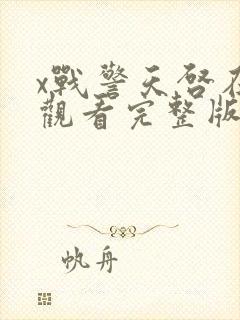 x戰警天啓在
觀看完整版
帆舟